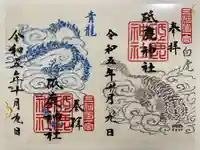 奉拝
白虎
砥鹿神社
令和五年十月九日
青龍
奉拝
砥鹿神社
令和五年十月九日